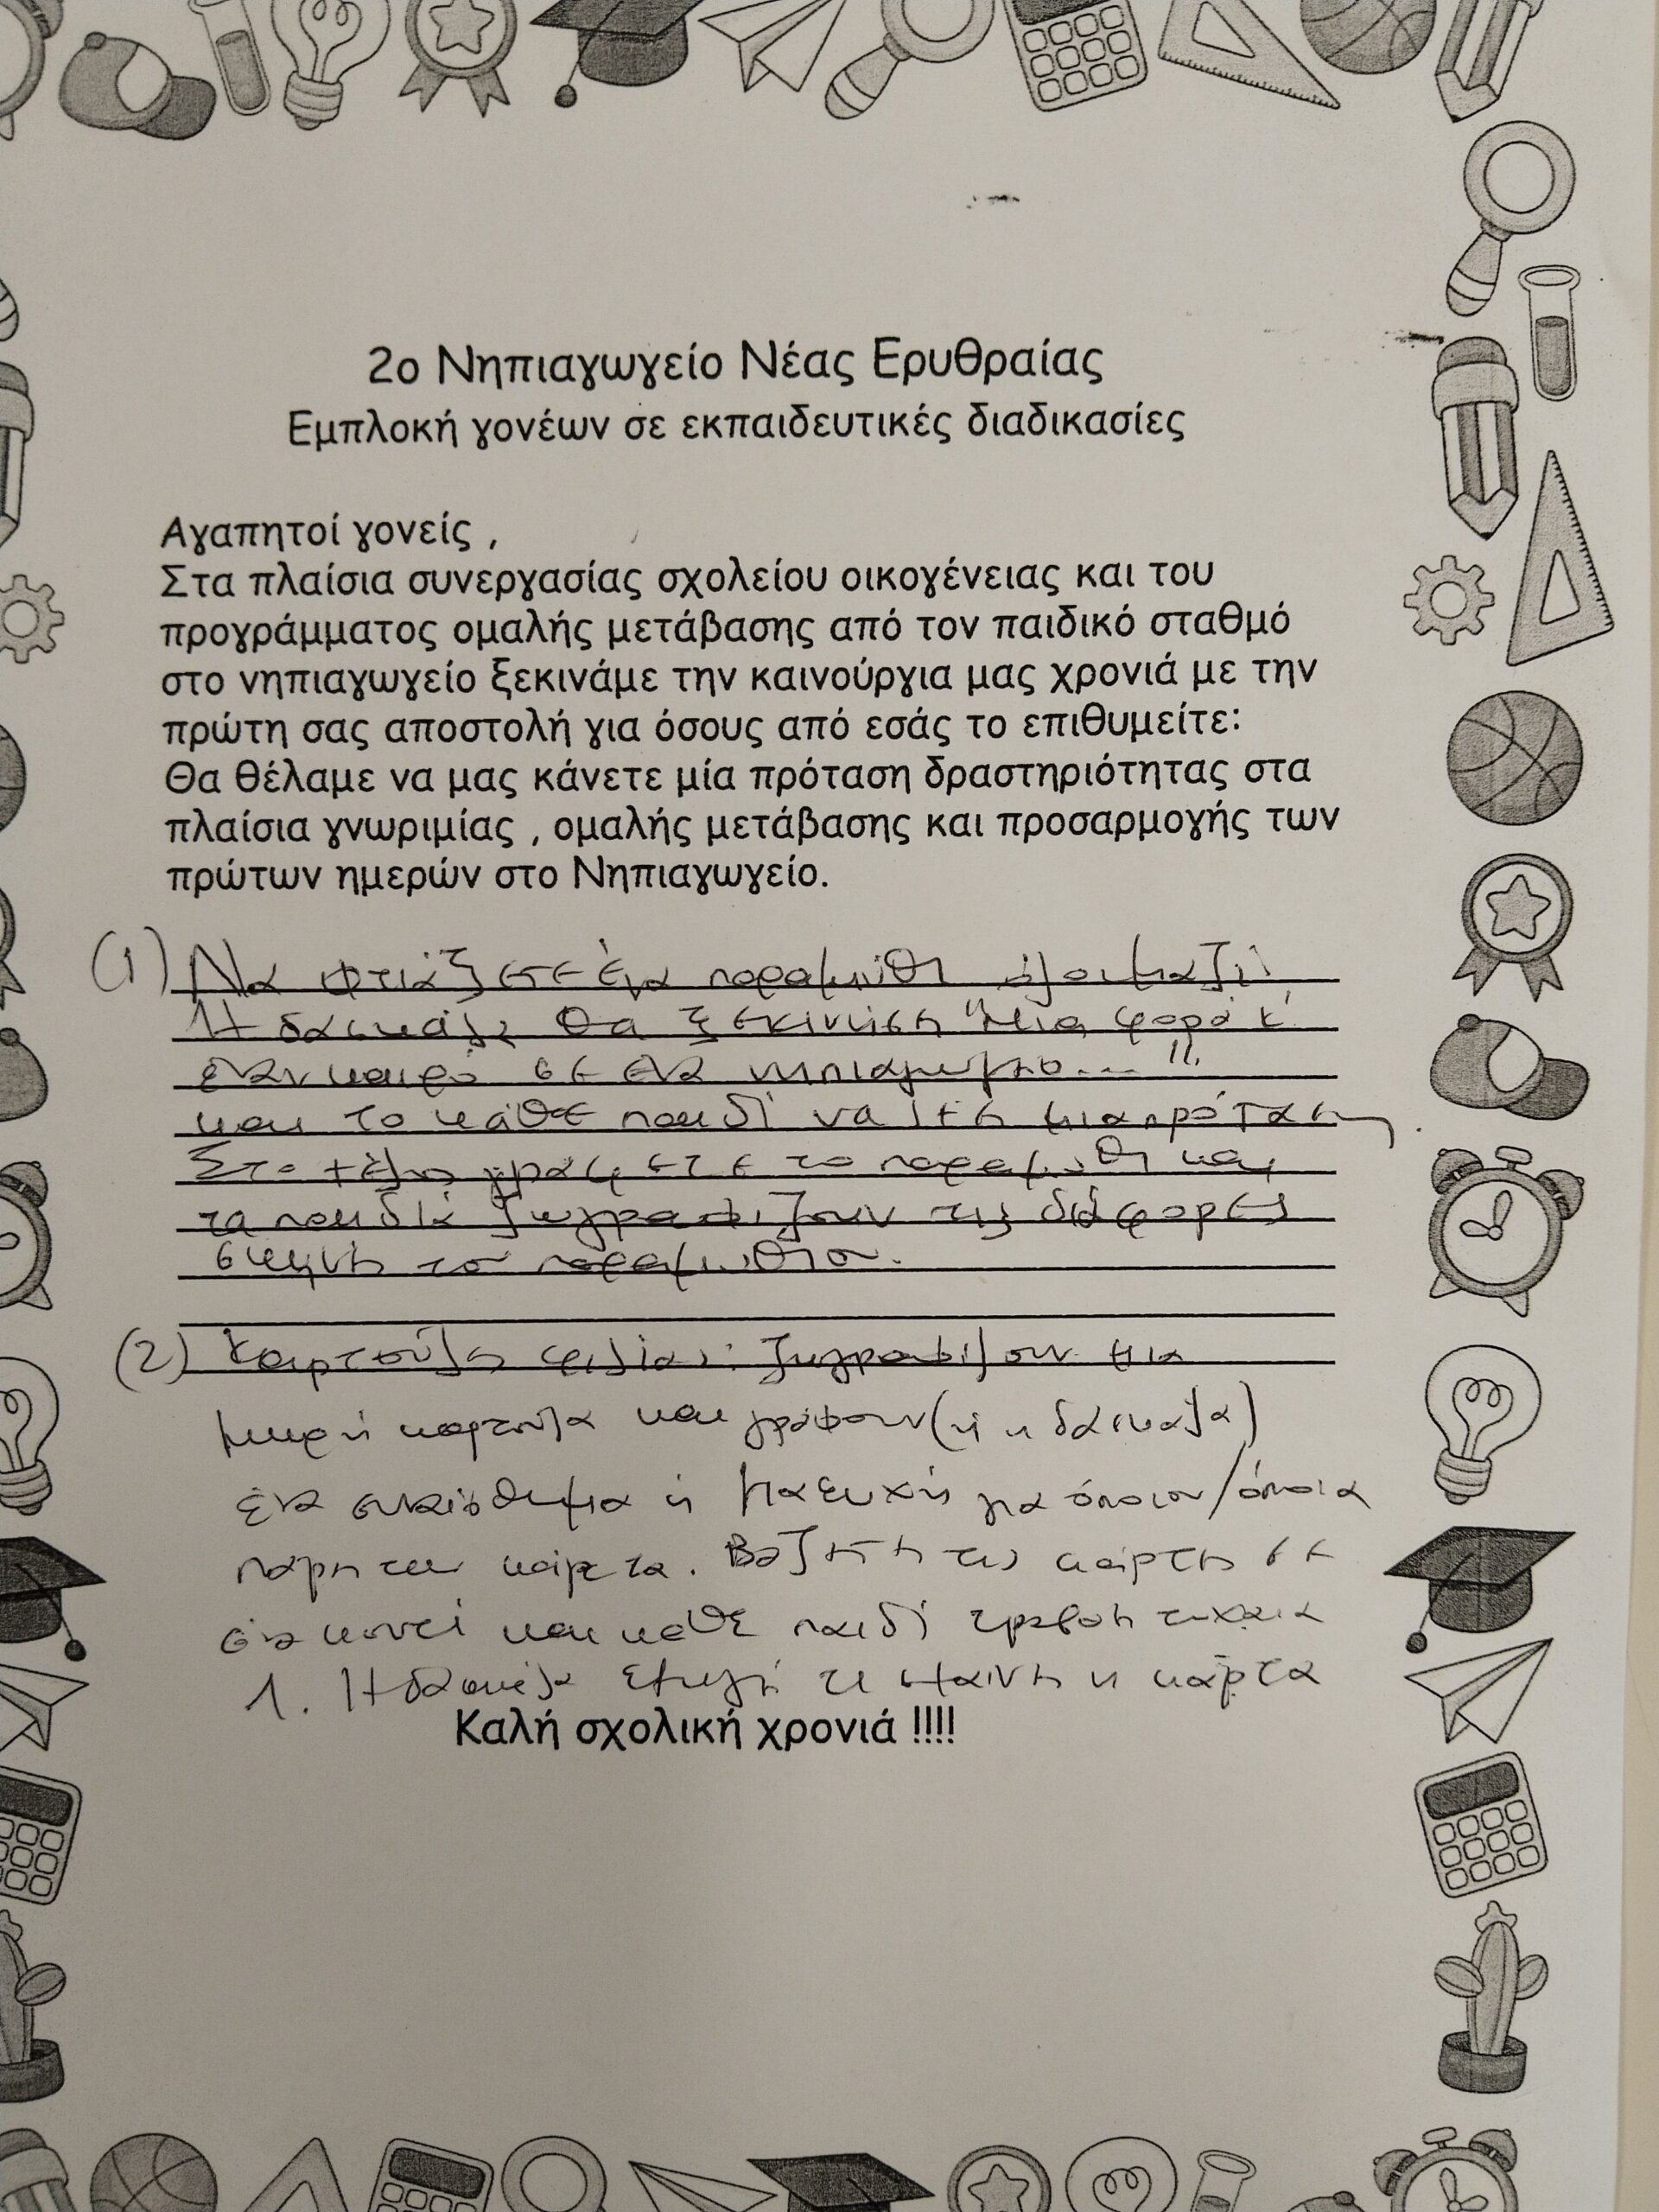 2ο Νηπιαγωγείο Νέας Ερυθραίας
Εμπλοκή γονέων σε εκπαιδευτικές διαδικασίες
Αγαπητοί γονείς ,
Στα πλαίσια συνεργασίας σχολείου οικογένειας και του
προγράμματος ομαλής μετάβασης από τον παιδικό σταθμό
στο νηπιαγωγείο ξεκινάμε την καινούργια μας χρονιά με την
πρώτη σας αποστολή για όσους από εσάς το επιθυμείτε:
Θα θέλαμε να μας κάνετε μία πρόταση δραστηριότητας στα
πλαίσια γνωριμίας , ομαλής μετάβασης και προσαρμογής των
πρώτων ημερών στο Νηπιαγωγείο.
(1) Να φτιάξετε ένα παραμύθι όλοι μαζί.
Η δασκάλα θα ξεκινήσει "Μια φορά κ'
έναν καιρό σε ένα νηπιαγωγείο... "
και το κάθε παιδί να λέει μια πρόταση.
Στο τέλος γράφετε το παραμύθι και
τα παιδιά ζωγραφίζουν τις διάφορες
σκηνές του παραμυθιού.
(2) Καρτούλες φιλίας: Ζωγραφίζουν μια
μικρή καρτούλα και γράφουν (ή η δασκάλα)
ένα συναίσθημα ή μια ευχή για όποιον/όποια
πάρει την κάρτα. Βάζετε τις κάρτες σε
ένα κουτί και κάθε παιδί τραβάει τυχαία
1. Η δασκάλα εξηγεί τι η κάρτα
Καλή σχολική χρονιά !!!!